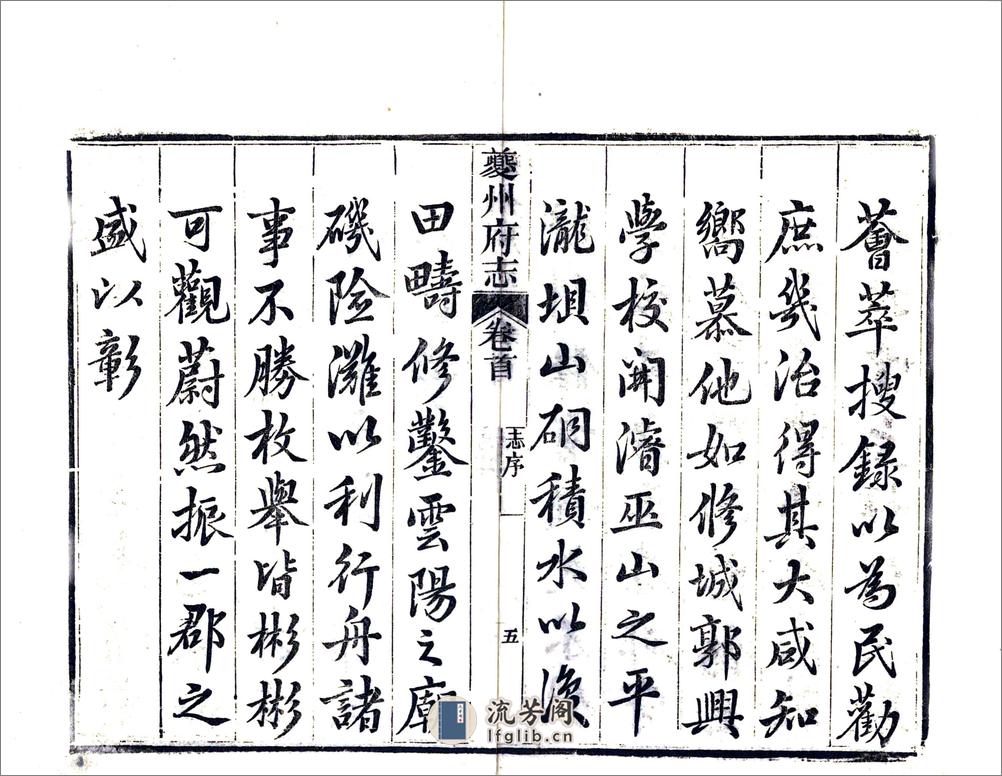 薈萃搜録以為民勸
庶㡬治得其大咸知
嚮慕他如修城郭興
學校開濬巫山之平
瀧垻山硐積水以溉
夔州府志
卷首
志序
五
田疇修鑿雲陽之廟
磯險灘以利行舟諸
事不勝枚舉皆彬彬
可觀蔚然振一郡之
盛以彰
流芳阁
lfglib.cn